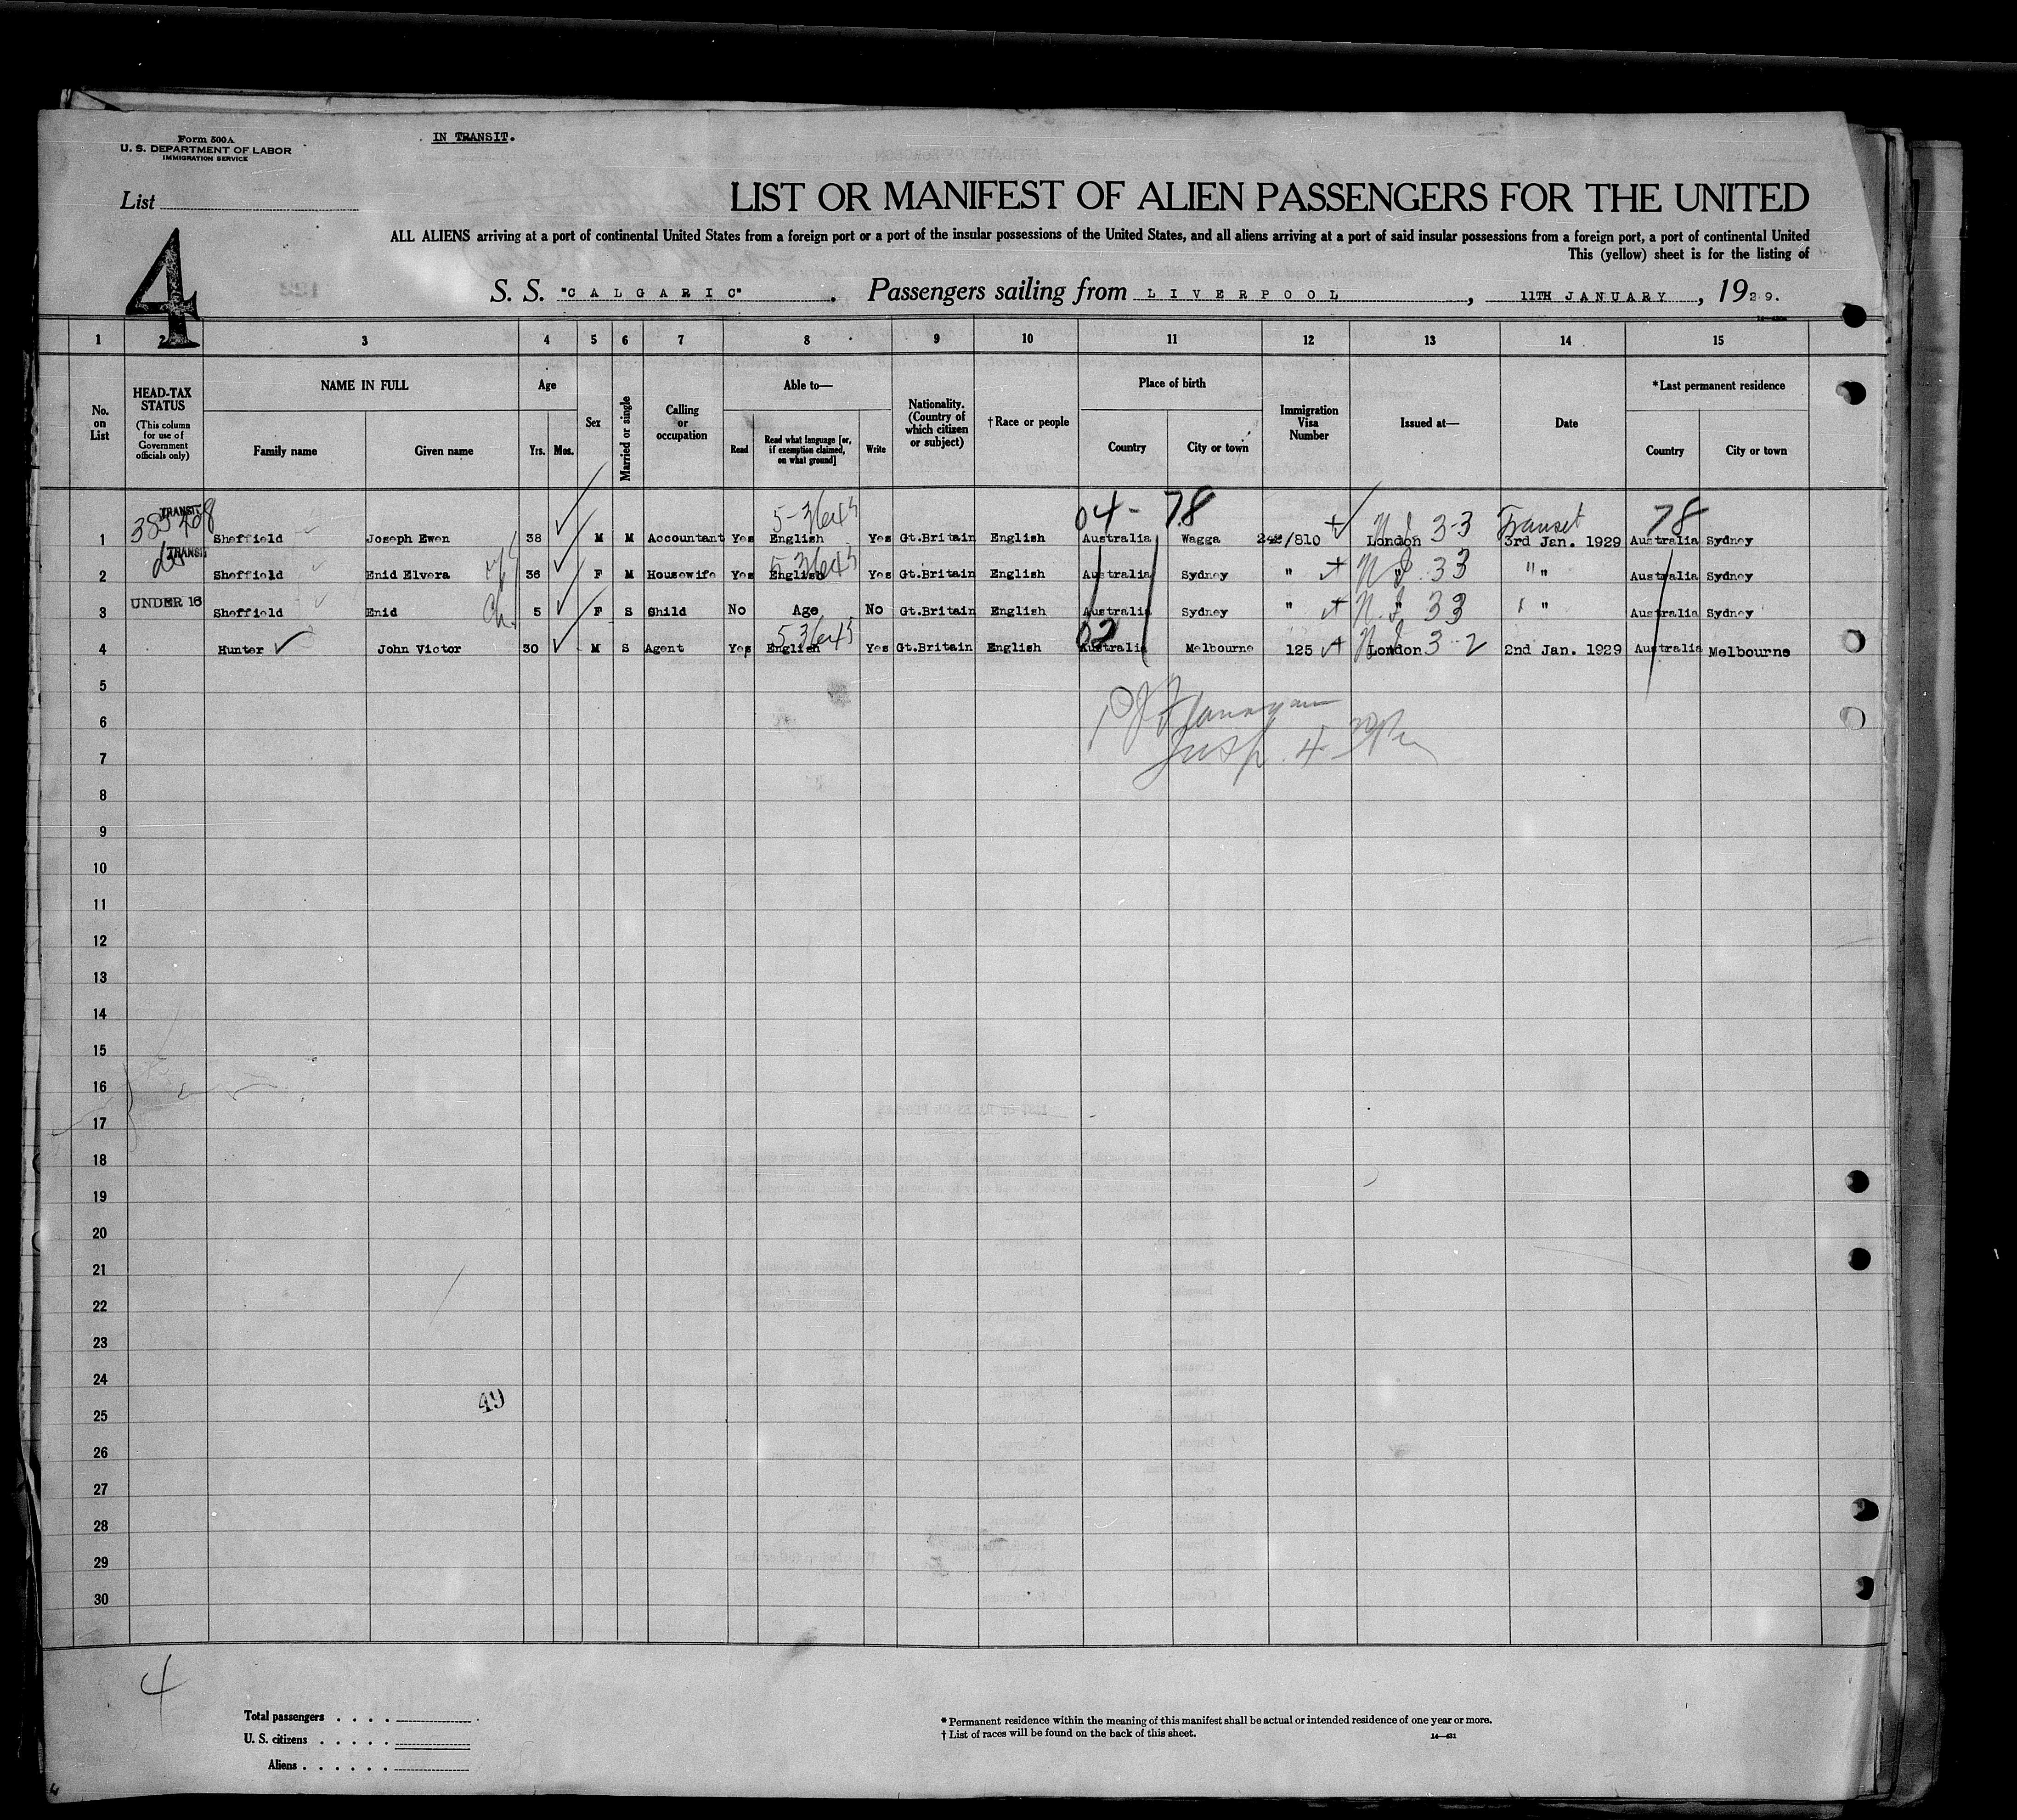 Form 500A
U. S. DEPARTMENT OF LABOR
IMMIGRATION SERVICE
IN TRANSIT.
List
4
LIST OR MANIFEST OF ALIEN PASSENGERS FOR THE UNITED
ALL ALIENS arriving at a port of continental United States from a foreign port or a port of the insular possessions of the United States, and all aliens arriving at a port of said insular possessions from a foreign port, a port of continental United
This (yellow) sheet is for the listing of
S. S. "CALGARIC" . Passengers sailing from LIVERPOOL , 11TH JANUARY , 1929.
1 2 3 4 5 6 7 8 9 10 11 12 13 14 15
No. on List
HEAD-TAX STATUS (This column for use of Government officials only)
NAME IN FULL
Family name
Given name
Age
Yrs. Mos.
Sex
Married or single
Calling or occupation
Able to—
Read
Read what language [or, if exemption claimed, on what ground]
Write
Nationality. (Country of which citizen or subject)
† Race or people
Place of birth
Country
City or town
Immigration Visa Number
Issued at—
Date
*Last permanent residence
Country
City or town
TRANSIT 04 - 78 Transit 78
1 Sheffield Joseph Ewen 38 M M Accountant Yes English Yes Gt.Britain English Australia Wagga /810 London 3-3 3rd Jan. 1929 Australia Sydney
TRANSIT
2 Sheffield Enid Elvera 36 F M Housewife Yes English Yes Gt.Britain English Australia Sydney " " 33 " " Australia Sydney
UNDER 16
3 Sheffield Enid Ch. 5 F S Child No Age No Gt.Britain English Australia Sydney " " 33 " " Australia Sydney
02
4 Hunter John Victor 30 M S Agent Yes English Yes Gt.Britain English Australia Melbourne 125 London 3-2 2nd Jan. 1929 Australia Melbourne
5
P J Flanagan
6
Insp.
7
8
9
10
11
12
13
14
15
16
17
18
19
20
21
22
23
24
49
25
26
27
28
29
30
4
Total passengers . . . .
U. S. citizens . . . . .
Aliens . . . . . .
* Permanent residence within the meaning of this manifest shall be actual or intended residence of one year or more.
† List of races will be found on the back of this sheet.
14—431